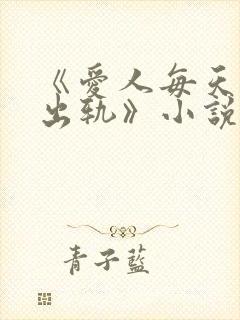 《愛人每天
出轨》小說
青子藍